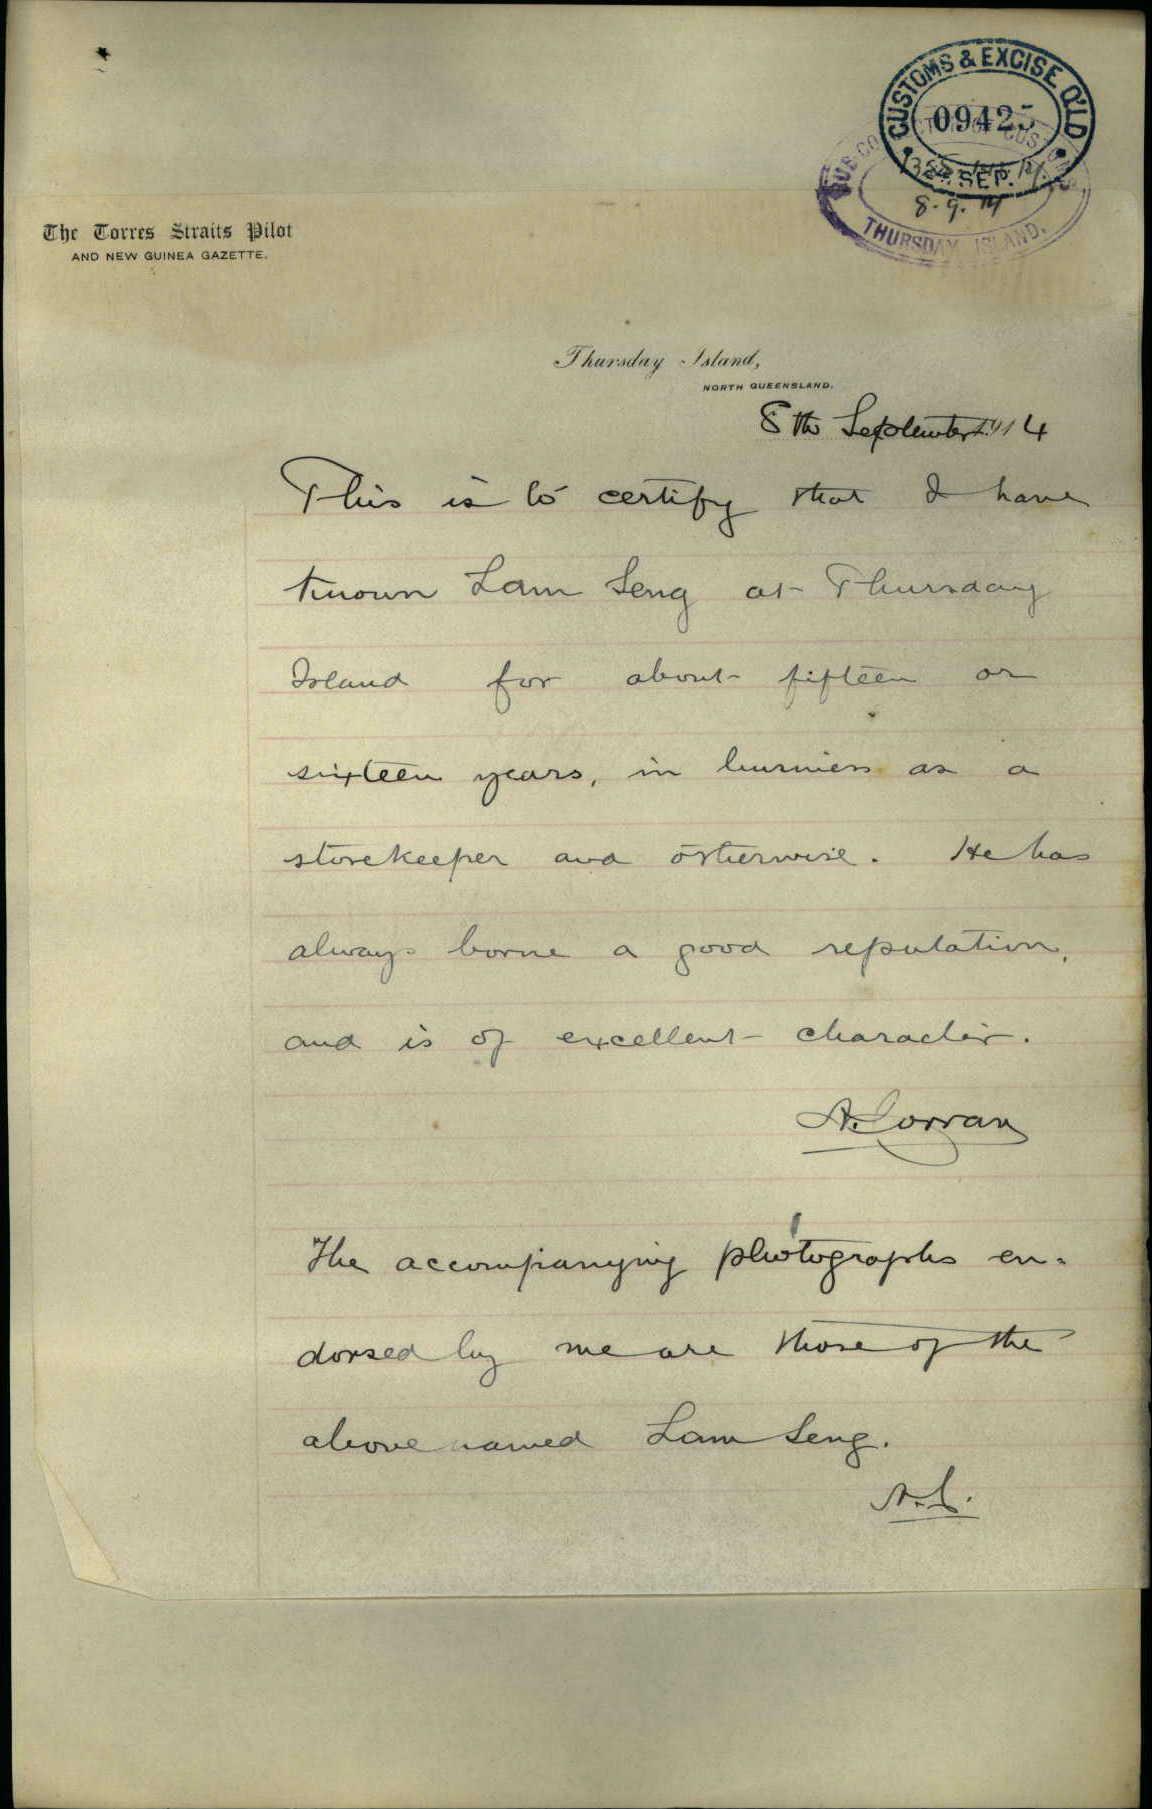 CUSTOMS & EXCISE Q'LD
09425
SEP.
8.9.14
THURSDAY ISLAND.
The Torres Straits Pilot
AND NEW GUINEA GAZETTE.
Thursday Island,
NORTH QUEENSLAND.
8th September 1914
This is to certify that I have
known Lam Seng at Thursday
Island for about fifteen or
sixteen years, in business as a
storekeeper and otherwise. He has
always borne a good reputation,
and is of excellent character.
A. Corran
The accompanying photographs en=
dorsed by me are those of the
above named Lam Seng.
A.C.